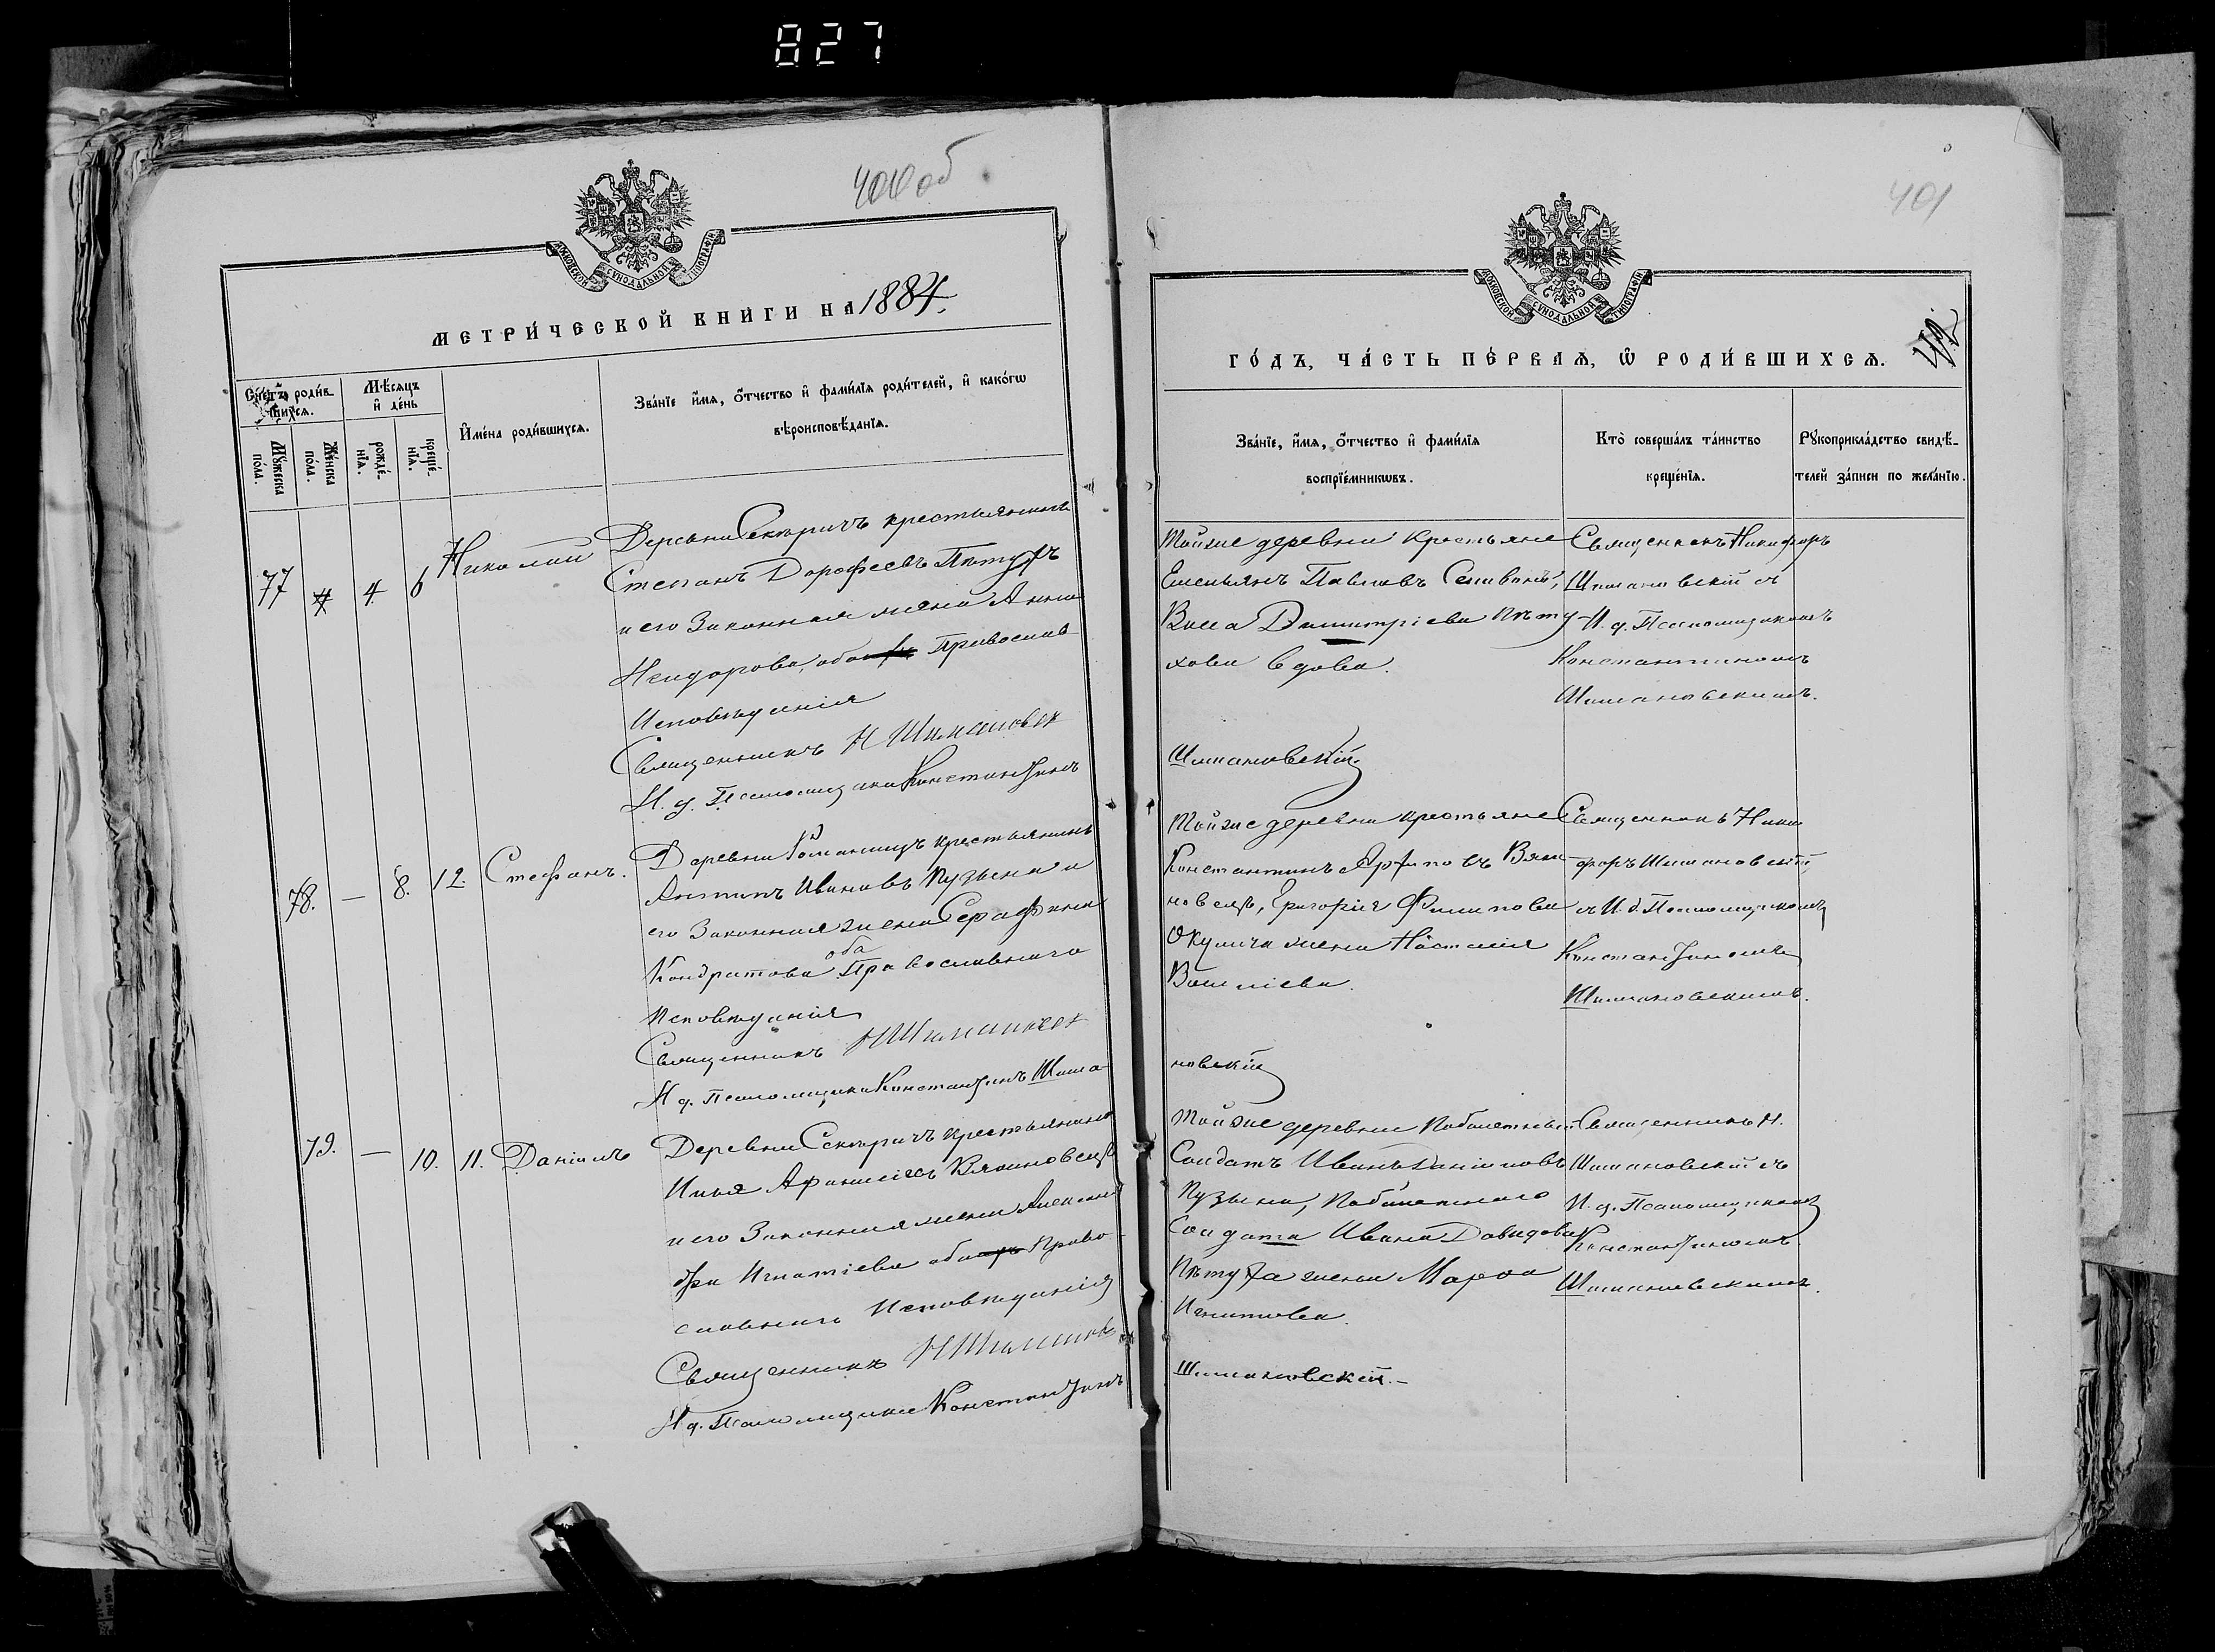 827
400 об
МОСКОВСКОЙ СѴНОДАЛЬНОЙ ТИПОГРАФІИ
МЕТРИ́ЧЕСКОЙ КНИ́ГИ НА 1884.
Сче́тъ роди́вшихся.
Мѣ́сяцъ и де́нь
Имена̀ роди́вшихся.
Зва́нїе и́мя, о́тчество и҆ фами́лїя роди́телей, и҆ како́гѡ вѣроисповѣ́данїя.
Мꙋ́жеска по́ла.
Же́нска по́ла.
рожде́нїя.
креще́нїя.
77 4. 6 Николай
Деревни Секеричъ крестьянинъ
Степанъ Дорофеевъ Пѣтухъ
и его Законная жена Анна
Исидорова, оба Православ
Исповѣданія
Священникъ Н Шиманов
И. д. Псаломщика Константинъ
78. — 8. 12. Стефанъ.
Деревни крестьянинъ
Антипъ Ивановъ Пузына и
его Законная жена Серафима
Кондратова оба Православнаго
Исповѣданія
Священникъ Н Шиманов
И д. Псаломщика Константинъ Шима-
79. — 10. 11. Даніилъ
Деревни Секеричъ крестьянинъ
Илья Афанасіевъ Вяшновецъ
и его Законная жена Алексан
дра Игнатіева оба Право-
славнаго Исповѣданія
Священникъ Н Шиманов
И д. Псаломщика Константинъ
401
МОСКОВСКОЙ СѴНОДАЛЬНОЙ ТИПОГРАФІИ
ГО́ДЪ, ЧА́СТЬ ПЕ́РВАЯ, Ѡ РОДИ́ВШИХСЯ.
Зва́нїе, и́мя, о́тчество и҆ фами́лїя воспрїе́мникѡвъ.
Кто̀ соверша́лъ та́инство креще́нїя.
Рꙋкоприкла́дство свидѣ́телей за́писи по жела́нїю.
Тойже деревни Крестьяне
Емельянъ Павловъ
Васса Димитріева Пѣту-
хова вдова.
Священникъ Никифоръ
Шимановскій съ
И. д. Псаломщикомъ
Константиномъ
Шимановскимъ.
Шимановскій
Тойже деревни крестьяне
Константинъ Вяш-
новецъ, Григорія Филипова
Окулича жена Настасія
Василіева.
Священникъ Ники
форъ Шимановскій,
съ И. д. Псаломщикомъ
Константиномъ
Шимановскимъ.
новскій
Тойже деревни
Солдатъ Иванъ Даніиловъ
Пузына,
Солдата Ивана Давидова
Пѣтуха жена Марѳа
Игнатова.
Священникъ Н.
Шимановскій съ
И. д. Псаломщикомъ
Константиномъ
Шимановскимъ.
Шимановскій.—